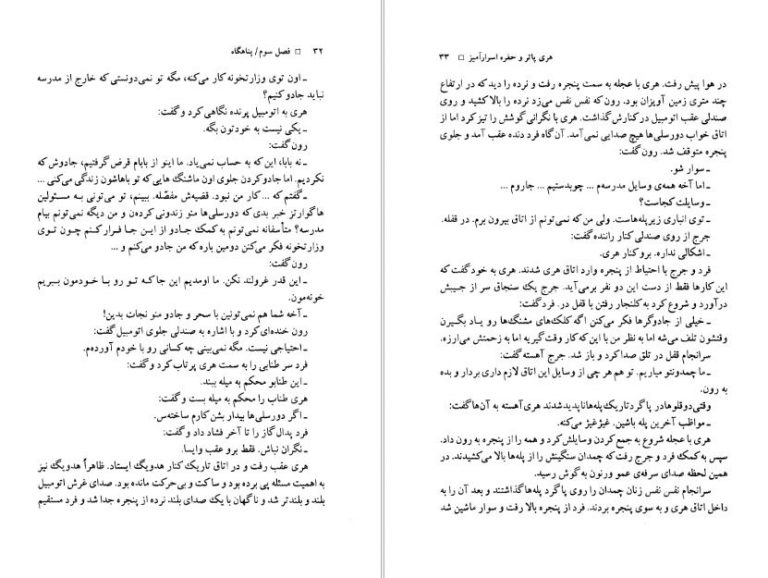 ۳۲ □ فصل سوم / پناهگاه
ـ اون توی وزارتخونه کار می‌کنه، مگه تو نمی‌دونستی که خارج از مدرسه
نباید جادو کنیم؟
هری به اتومبیل پرنده نگاهی کرد و گفت:
ـ یکی نیست به خودتون بگه.
رون گفت:
ـ نه بابا، این که به حساب نمی‌یاد. ما اینو از بابام قرض گرفتیم، جادوش که
نکردیم. اما جادو کردن جلوی اون ماشنگ هایی که تو باهاشون زندگی می‌کنی ...
ـ گفتم که ... کار من نبود. قضیه‌ش مفصّله. ببینم، تو می‌تونی به مسئولین
هاگوارتز خبر بدی که دورسلی‌ها منو زندونی کرده‌ن و من دیگه نمی‌تونم بیام
مدرسه؟ متأسفانه نمی‌تونم به کمک جادو از این جا فرار کنم چون توی
وزارتخونه فکر می‌کنن دومین باره که من جادو می‌کنم و ...
رون گفت:
ـ این قدر غرولند نکن. ما اومدیم این جا که تو رو با خودمون ببریم
خونه‌مون.
ـ آخه شما هم نمی‌تونین با سحر و جادو منو نجات بدین!
رون خنده‌ای کرد و با اشاره به صندلی جلوی اتومبیل گفت:
ـ احتیاجی نیست. مگه نمی‌بینی چه کسانی رو با خودم آورده‌م.
فرد سر طنابی را به سمت هری پرتاب کرد و گفت:
ـ این طنابو محکم به میله ببند.
هری طناب را محکم به میله بست و گفت:
ـ اگر دورسلی‌ها بیدار بشن کارم ساخته‌س.
فرد پدال گاز را تا آخر فشار داد و گفت:
ـ نگران نباش. فقط برو عقب وایسا.
هری عقب رفت و در اتاق تاریک کنار هدویگ ایستاد. ظاهراً هدویگ نیز
به اهمیت مسئله پی برده بود و ساکت و بی‌حرکت مانده بود. صدای غرش اتومبیل
بلند و بلندتر شد و ناگهان با یک صدای بلند نرده از پنجره جدا شد و فرد مستقیم
هری پاتر و حفره اسرارآمیز □ ۳۳
در هوا پیش رفت. هری با عجله به سمت پنجره رفت و نرده را دید که در ارتفاع
چند متری زمین آویزان بود. رون که نفس نفس می‌زد نرده را بالا کشید و روی
صندلی عقب اتومبیل در کنارش گذاشت. هری با نگرانی گوشش را تیز کرد اما از
اتاق خواب دورسلی‌ها هیچ صدایی نمی‌آمد. آن گاه فرد دنده عقب آمد و جلوی
پنجره متوقف شد. رون گفت:
ـ سوار شو.
ـ اما آخه همه‌ی وسایل مدرسه‌م ... چوبدستیم ... جاروم ...
ـ وسایلت کجاست؟
ـ توی انباری زیر پله‌هاست. ولی من که نمی‌تونم از اتاق بیرون برم. در قفله.
جرج از روی صندلی کنار راننده گفت:
ـ اشکالی نداره. برو کنار هری.
فرد و جرج با احتیاط از پنجره وارد اتاق هری شدند. هری به خود گفت که
این کارها فقط از دست این دو نفر برمی‌آید. جرج یک سنجاق سر از جیبش
درآورد و شروع کرد به کلنجار رفتن با قفل در. فرد گفت:
ـ خیلی از جادوگرها فکر می‌کنن اگه کلک‌های مشنگ‌ها رو یاد بگیرن
وقتشون تلف می‌شه اما به نظر من با این که کار وقت‌گیریه اما به زحمتش می‌ارزه.
سرانجام قفل در تلق صدا کرد و باز شد. جرج آهسته گفت:
ـ ما چمدونتو میاریم. تو هم هر چی از وسایل این اتاق لازم داری بردار و بده
به رون.
وقتی دوقلوها در پاگرد تاریک پله‌ها ناپدید شدند هری آهسته به آن‌ها گفت:
ـ مواظب آخرین پله باشین. غیژغیژ می‌کنه.
هری با عجله شروع به جمع کردن وسایلش کرد و همه را از پنجره به رون داد.
سپس به کمک فرد و جرج رفت که چمدان سنگینش را از پله‌ها بالا می‌کشیدند. در
همین لحظه صدای سرفه‌ی عمو ورنون به گوش رسید.
سرانجام نفس نفس زنان چمدان را روی پاگرد پله‌ها گذاشتند و بعد آن را به
داخل اتاق هری و به سوی پنجره بردند. فرد از پنجره بالا رفت و سوار ماشین شد